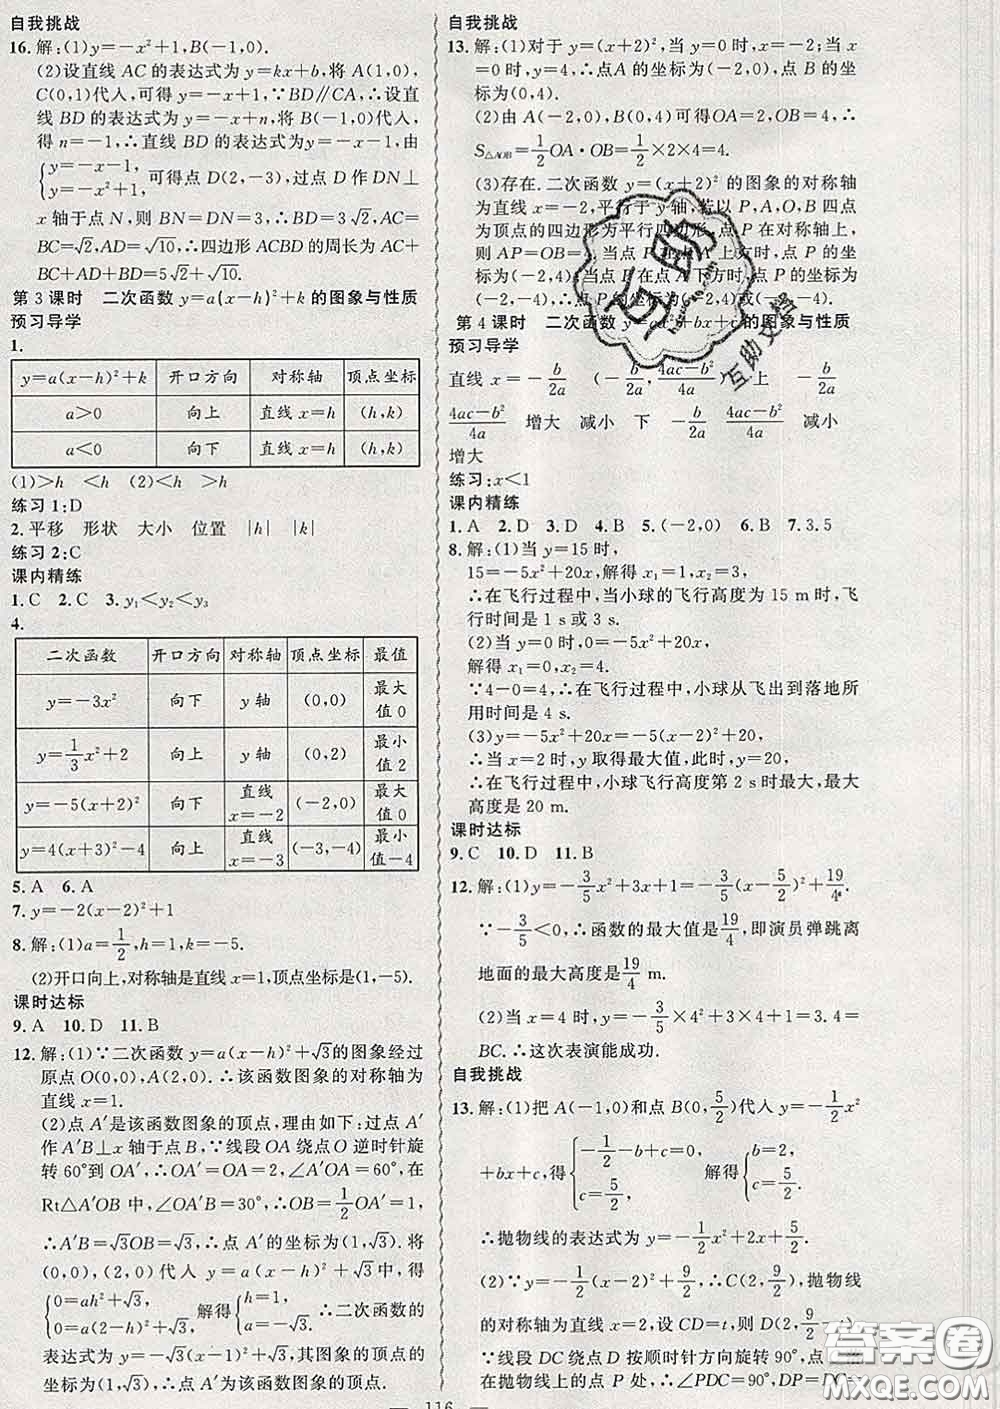 自我挑战
16.解:(1)y=-x²+1,B(-1,0).
(2)设直线 AC 的表达式为 y=kx+b,将 A(1,0),
C(0,1)代入,可得 y=-x+1,∵BD∥CA,∴设直
线 BD 的表达式为 y=-x+n,将 B(-1,0)代入,
得 n=-1,∴直线 BD 的表达式为 y=-x-1,由
{y=-x-1,
y=-x²+1, 可得点 D(2,-3),过点 D 作 DN⊥
x 轴于点 N,则 BN=DN=3,∴BD=3√2,AC=
BC=√2,AD=√10,∴四边形 ACBD 的周长为 AC+
BC+BD+AD=5√2+√10.
第 3 课时 二次函数 y=a(x-h)²+k 的图象与性质
预习导学
1.
y=a(x-h)²+k 开口方向 对称轴 顶点坐标
a>0 向上 直线 x=h (h,k)
a<0 向下 直线 x=h (h,k)
(1)>h <h (2)<h >h
练习 1:D
2.平移 形状 大小 位置 |h| |k|
练习 2:C
课内精练
1.C 2.C 3.y₁<y₂<y₃
4.
二次函数 开口方向 对称轴 顶点坐标 最值
y=-3x² 向下 y 轴 (0,0) 最大值 0
y=1/3x²+2 向上 y 轴 (0,2) 最小值 2
y=-5(x+2)² 向下 直线 x=-2 (-2,0) 最大值 0
y=4(x+3)²-4 向上 直线 x=-3 (-3,-4) 最小值-4
5.A 6.A
7.y=-2(x-2)²+1
8.解:(1)a=1/2,h=1,k=-5.
(2)开口向上,对称轴是直线 x=1,顶点坐标是(1,-5).
课时达标
9.A 10.D 11.B
12.解:(1)∵二次函数 y=a(x-h)²+√3的图象经过
原点 O(0,0),A(2,0).∴该函数图象的对称轴为
直线 x=1.
(2)点 A′是该函数图象的顶点,理由如下:过点 A′
作 A′B⊥x 轴于点 B,∵线段 OA 绕点 O 逆时针旋
转 60°到 OA′,∴OA′=OA=2,∠A′OA=60°,在
Rt△A′OB 中,∠OA′B=30°,∴OB=1/2OA′=1,
∴A′B=√3OB=√3,∴点 A′的坐标为(1,√3).将
(0,0),(2,0)代入 y=a(x-h)²+√3 中,得
{0=ah²+√3,
0=a(2-h)²+√3, 解得{h=1,
a=-√3, ∴二次函数的
表达式为 y=-√3(x-1)²+√3,∴函数图象的顶点的
坐标为(1,√3),∴点 A′为该函数图象的顶点.
自我挑战
13.解:(1)对于 y=(x+2)²,当 y=0时,x=-2;当 x=
0时,y=4,∴点A 的坐标为(-2,0),点 B 的坐
标为(0,4).
(2)由 A(-2,0),B(0,4)可得OA=2,OB=4,∴
S△AOB=1/2OA·OB=1/2×2×4=4.
(3)存在.二次函数 y=(x+2)² 的图象的对称轴
为直线 x=-2,平行于 y 轴,若以 P,A,O,B 四点
为顶点的四边形为平行四边形,点 P 在对称轴上,
则 AP=OB=4,当点 P 在点 A 上方时,点 P 坐标为
(-2,4);当点 P 在点 A 下方时,点 P 的坐标为
(-2,-4),∴点 P 的坐标为(-2,4)或(-2,-4).
第 4 课时 二次函数 y=ax²+bx+c的图象与性质
预习导学
直线 x=-b/2a (-b/2a,(4ac-b²)/4a) 上 -b/2a
(4ac-b²)/4a 增大 减小 下 -b/2a (4ac-b²)/4a 减小
增大
练习:x<1
课内精练
1.A 2.D 3.D 4.B 5.(-2,0) 6.B 7.3.5
8.解:(1)当 y=15 时,
15=-5x²+20x,解得 x₁=1,x₂=3,
∴在飞行过程中,当小球的飞行高度为 15 m时,飞
行时间是 1 s或 3 s.
(2)当 y=0 时,0=-5x²+20x,
解得 x₁=0,x₂=4.
∵4-0=4,∴在飞行过程中,小球从飞出到落地所
用时间是 4 s.
(3)y=-5x²+20x=-5(x-2)²+20,
∴当 x=2时,y 取得最大值,此时,y=20,
∴在飞行过程中,小球飞行高度第 2 s时最大,最大
高度是 20 m.
课时达标
9.C 10.D 11.B
12.解:(1)y=-3/5x²+3x+1=-3/5(x-5/2)²+19/4.
∵-3/5<0,∴函数的最大值是19/4,即演员弹跳离
地面的最大高度是19/4 m.
(2)当 x=4 时,y=-3/5×4²+3×4+1=3.4=
BC.∴这次表演能成功.
自我挑战
13.解:(1)把 A(-1,0)和点 B(0,5/2)代入 y=-1/2x²
+bx+c,得{-1/2-b+c=0,
c=5/2. 解得{b=2,
c=5/2.
∴抛物线的表达式为 y=-1/2x²+2x+5/2.
(2)∵y=-1/2(x-2)²+9/2,∴C(2,9/2),抛物线
的对称轴为直线 x=2,设 CD=t,则 D(2,9/2-t)
∵线段 DC 绕点 D 按顺时针方向旋转 90°,点
在抛物线上的点 P 处,∴∠PDC=90°,DP=DC=
— 116 —
互助
互助文学
答案圈
MXQE.COM